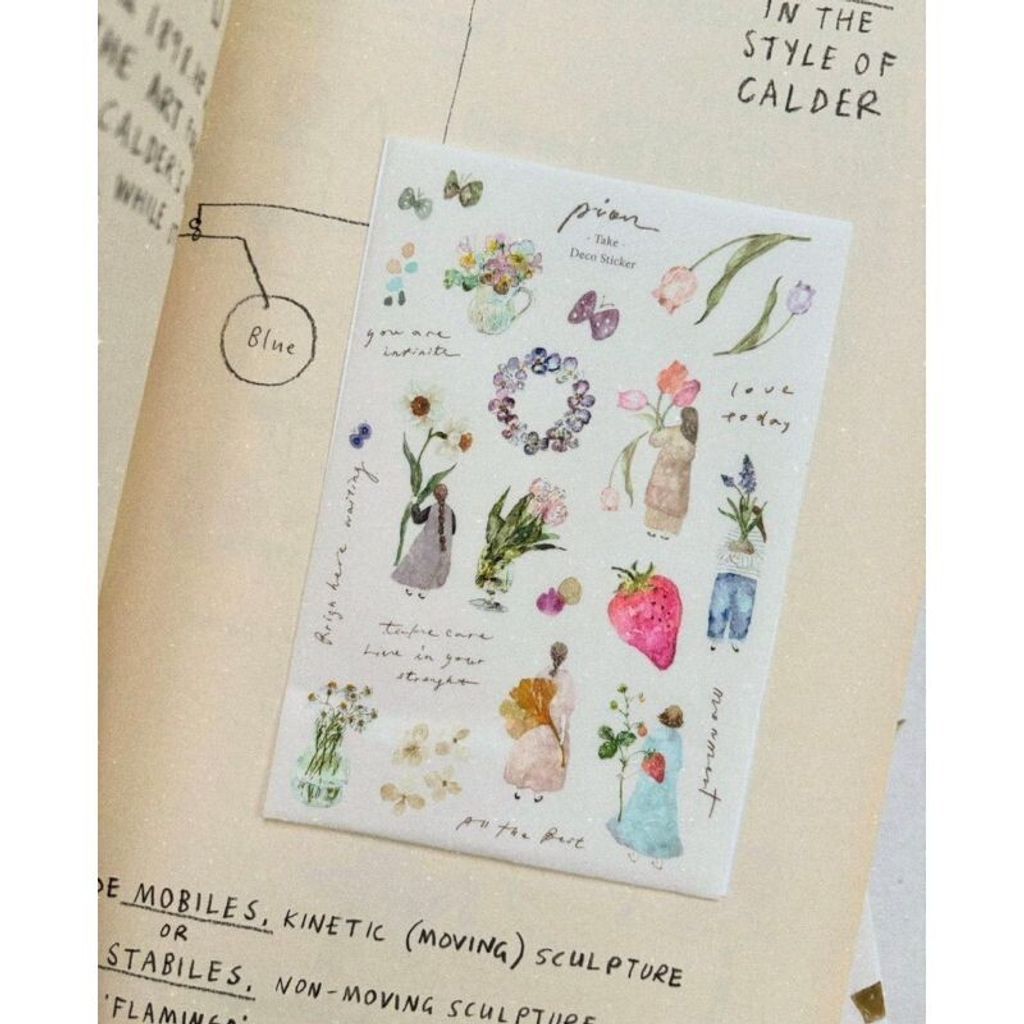 1898. HE
THE ART
CALDER'S
WHILE
IN THE
STYLE OF
CALDER
Blue
pion
· Take ·
Deco Sticker
you are
infinite
love
today
Brign here waiting
Take care
Live in your
stronght
moment
All the Best
DE MOBILES, KINETIC (MOVING) SCULPTURE
OR
STABILES, NON-MOVING SCULPTURE
'FLAMINGO'